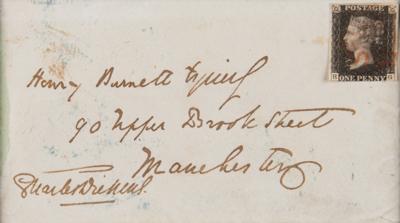 POSTAGE
ONE PENNY
Henry Burnett Esquire
90 Upper Brook Street
Manchester
Charles Dickens.